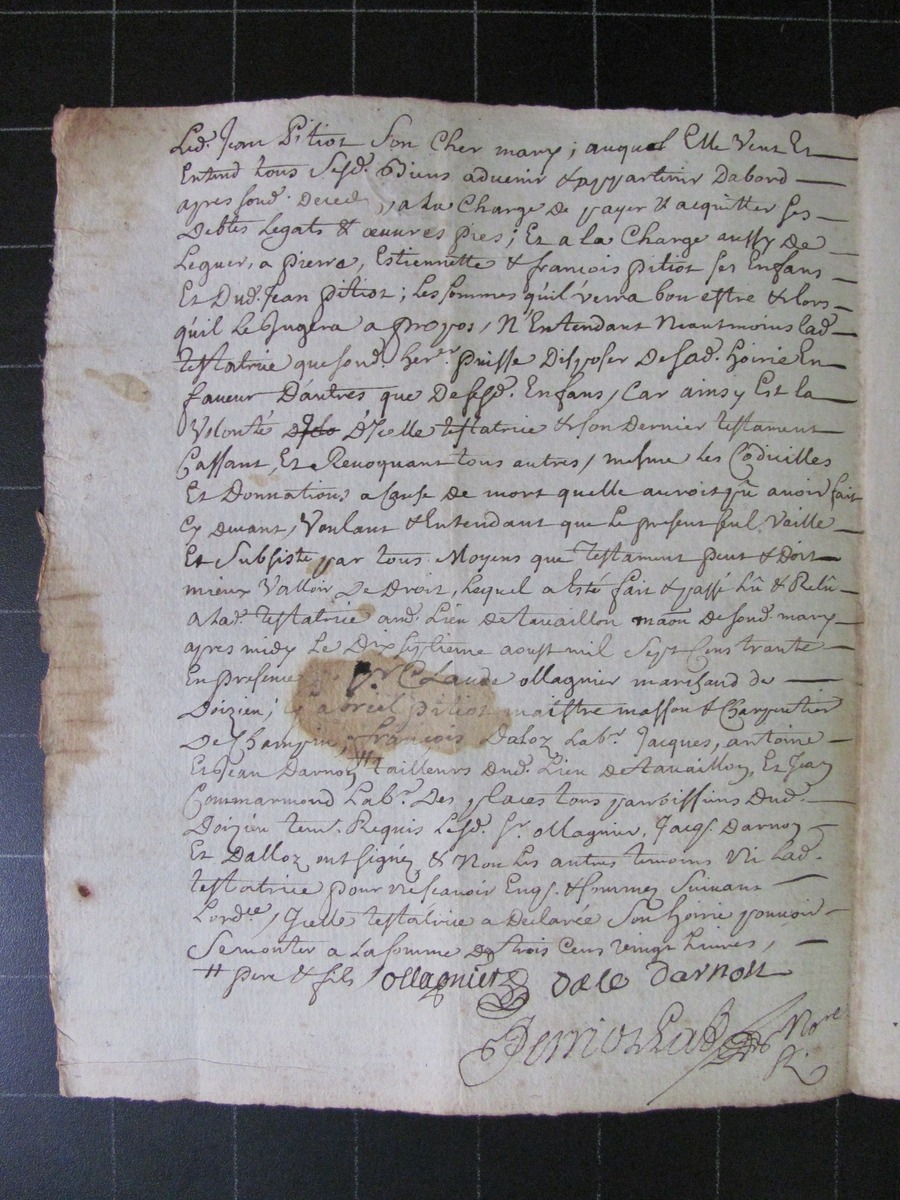 Led. Jean Pitiot Son Cher mary ; auquel Elle Veut Et
Entend tous Sesd. Biens advenir & appartenir Dabord
apres sond. Deced , a La Charge De payer & acquitter ses
Debtes Legats & œuvres pies ; Et a la Charge aussy De
Leguer, a pierre, Estiennette & francois pitiot ses Enfans
Et Dud. Jean pitiot ; Les sommes qu'il verra bon estre & Lors
qu'il Le Jugera a propos, N'Entendant Neantmoins lad.
testatrice que sond. her.er puisse Disposer De sad. hoirie En
faveur D'autres que De sesd. Enfans, Car ainsy Est la
Volonté D'Icelle testatrice & son Dernier testament
Cassant, Et Revoquant tous autres, mesme Les Codicilles
Et Donnations a Cause De mort quelle auroit pû avoir fait
Cy devant, Voulant & Entendant que Le present seul Vaille
Et Subsiste par tous Moyens que testament peut & Doit
mieux Valloir De Droit, Lequel a Esté fait & passé Lû & Relû
a Lad. testatrice aud. Lieu de tavaillon maōn De sond. mary
apres midy Le Dix septieme aoust mil Sept Cens trante
En presence Sr Claude ollagnier marchand de
Doizieu ; Gabriel pitiot maistre masson & Charpentier
De , francois Daloz Labr. Jacques, antoine
Et Jean Darnon # tailleurs Dud. Lieu De tavaillon, Et Jean
Commarmond Labr. Des places tous parroissiens Dud.
Doizieu tem. Requis Lesd. Sr. ollagnier, Jacq. Darnon
Et Dalloz ont signez & Non Les autres temoins Ni Lad.
testatrice pour ne scavoir Enq. & sommez Suivant
Lord.ce, Icelle testatrice a Declarée Son hoirie pouvoir
Se monter a La somme De trois Cens vingt Livres,
# pere & fils / ollagnier Dale Darnon
Nore
R.